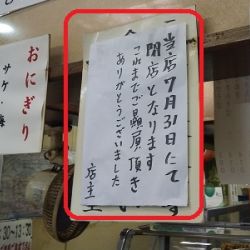 当店7月31日にて
閉店となります
これまでご贔屓頂き
ありがとうございました
店主
おにぎり
サケ・梅